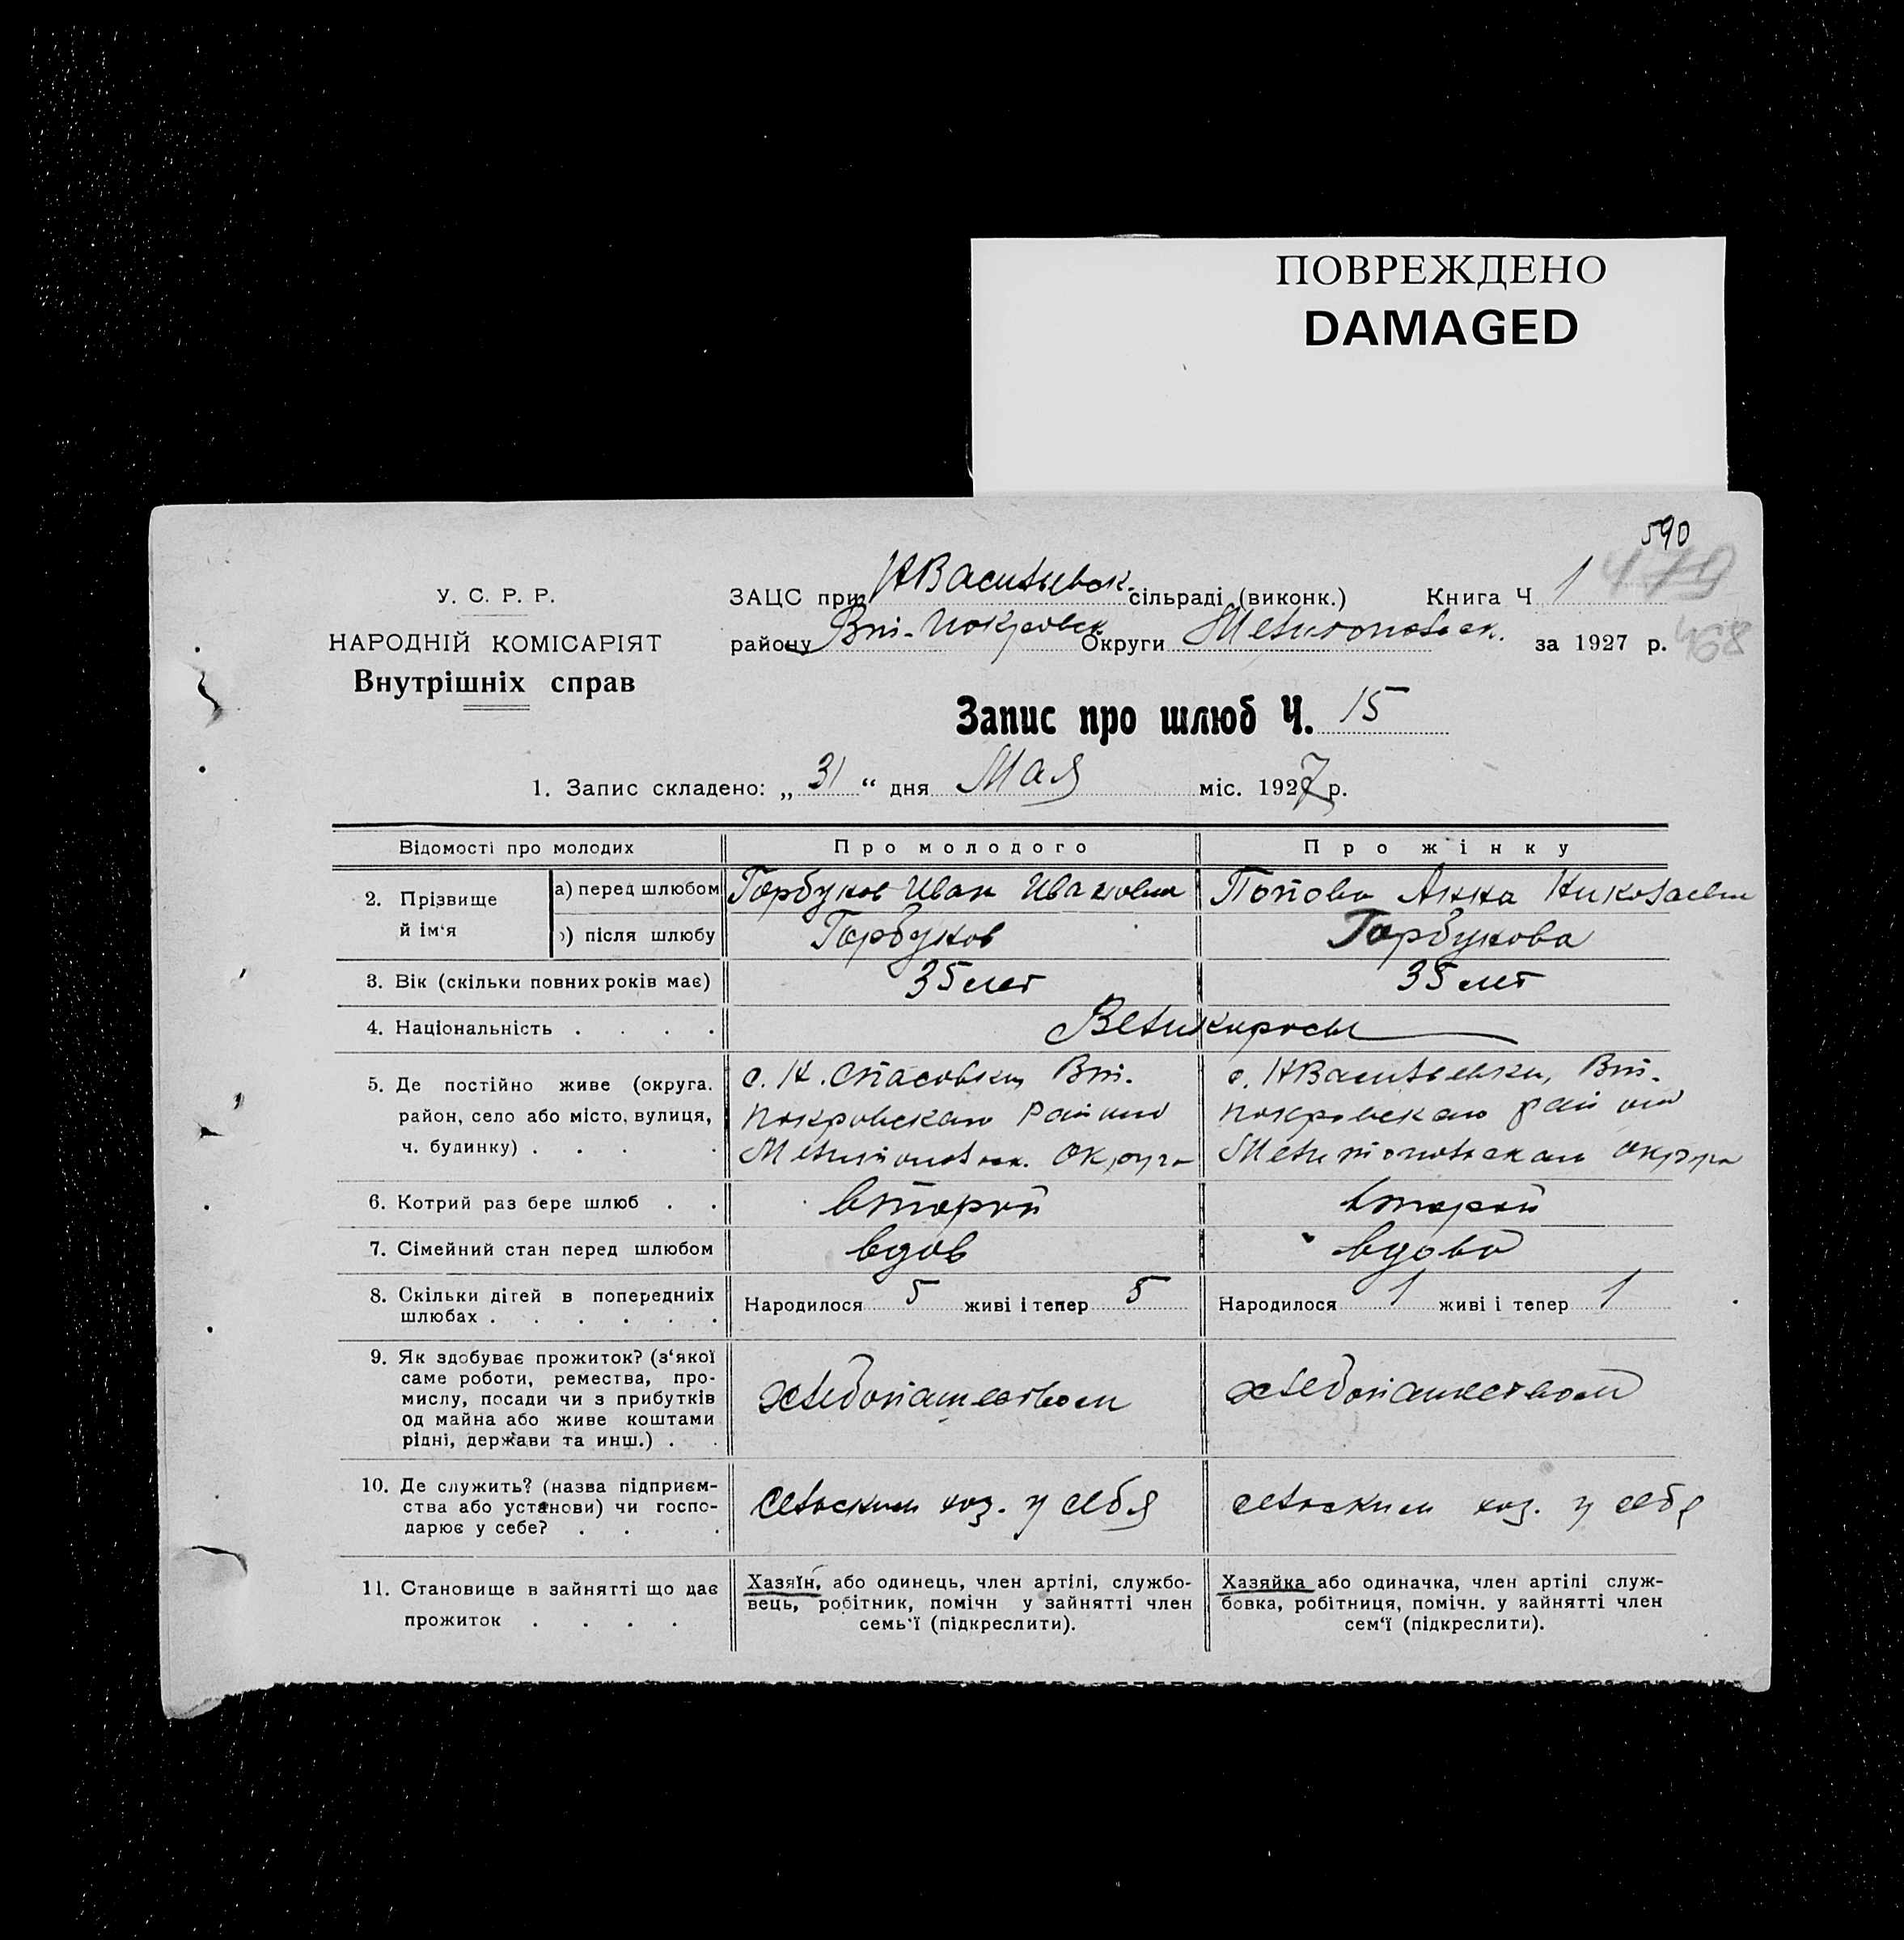 ПОВРЕЖДЕНО
DAMAGED
590
479
468
У. С. Р. Р.
НАРОДНІЙ КОМІСАРІЯТ
Внутрішніх справ
ЗАЦС при НВасильевск. сільраді (виконк.) Книга Ч 1
району Вт-Покровск Округи Мелитопольск. за 1927 р.
Запис про шлюб Ч. 15
1. Запис складено: „ 31 “ дня Мая міс. 1927 р.
Відомості про молодих
Про молодого
Про жінку
2. Прізвище й ім‘я
а) перед шлюбом
Горбунов Иван Иванович
Попова Анна Николаевна
б) після шлюбу
Горбунов
Горбунова
3. Вік (скільки повних років має)
35 лет
35 лет
4. Національність . . . .
Великороссы
5. Де постійно живе (округа.
район, село або місто, вулиця,
ч. будинку) . . . .
с. Н. Спасовки Вт.
Покровского Района
Мелитопольск. Округа
с. НВасильевки, Вт.
Покровского района
Мелитопольского округа
6. Котрий раз бере шлюб . .
второй
второй
7. Сімейний стан перед шлюбом
вдов
вдова
8. Скільки дітей в попередниіх
шлюбах . . . . . .
Народилося 5 живі і тепер 5
Народилося 1 живі і тепер 1
9. Як здобуває прожиток? (з‘якої
саме роботи, ремества, про-
мислу, посади чи з прибутків
од майна або живе коштами
рідні, держави та инш.) . .
хлебопашеством
хлебопашеством
10. Де служить? (назва підприєм-
ства або установи) чи госпо-
дарює у себе? . . .
сельским хоз. у себя
сельским хоз. у себя
11. Становище в зайнятті що дає
прожиток . . . .
Хазяїн, або одинець, член артілі, службо-
вець, робітник, помічн у зайнятті член
семь‘ї (підкреслити).
Хазяйка або одиначка, член артілі служ-
бовка, робітниця, помічн. у зайнятті член
сем‘ї (підкреслити).